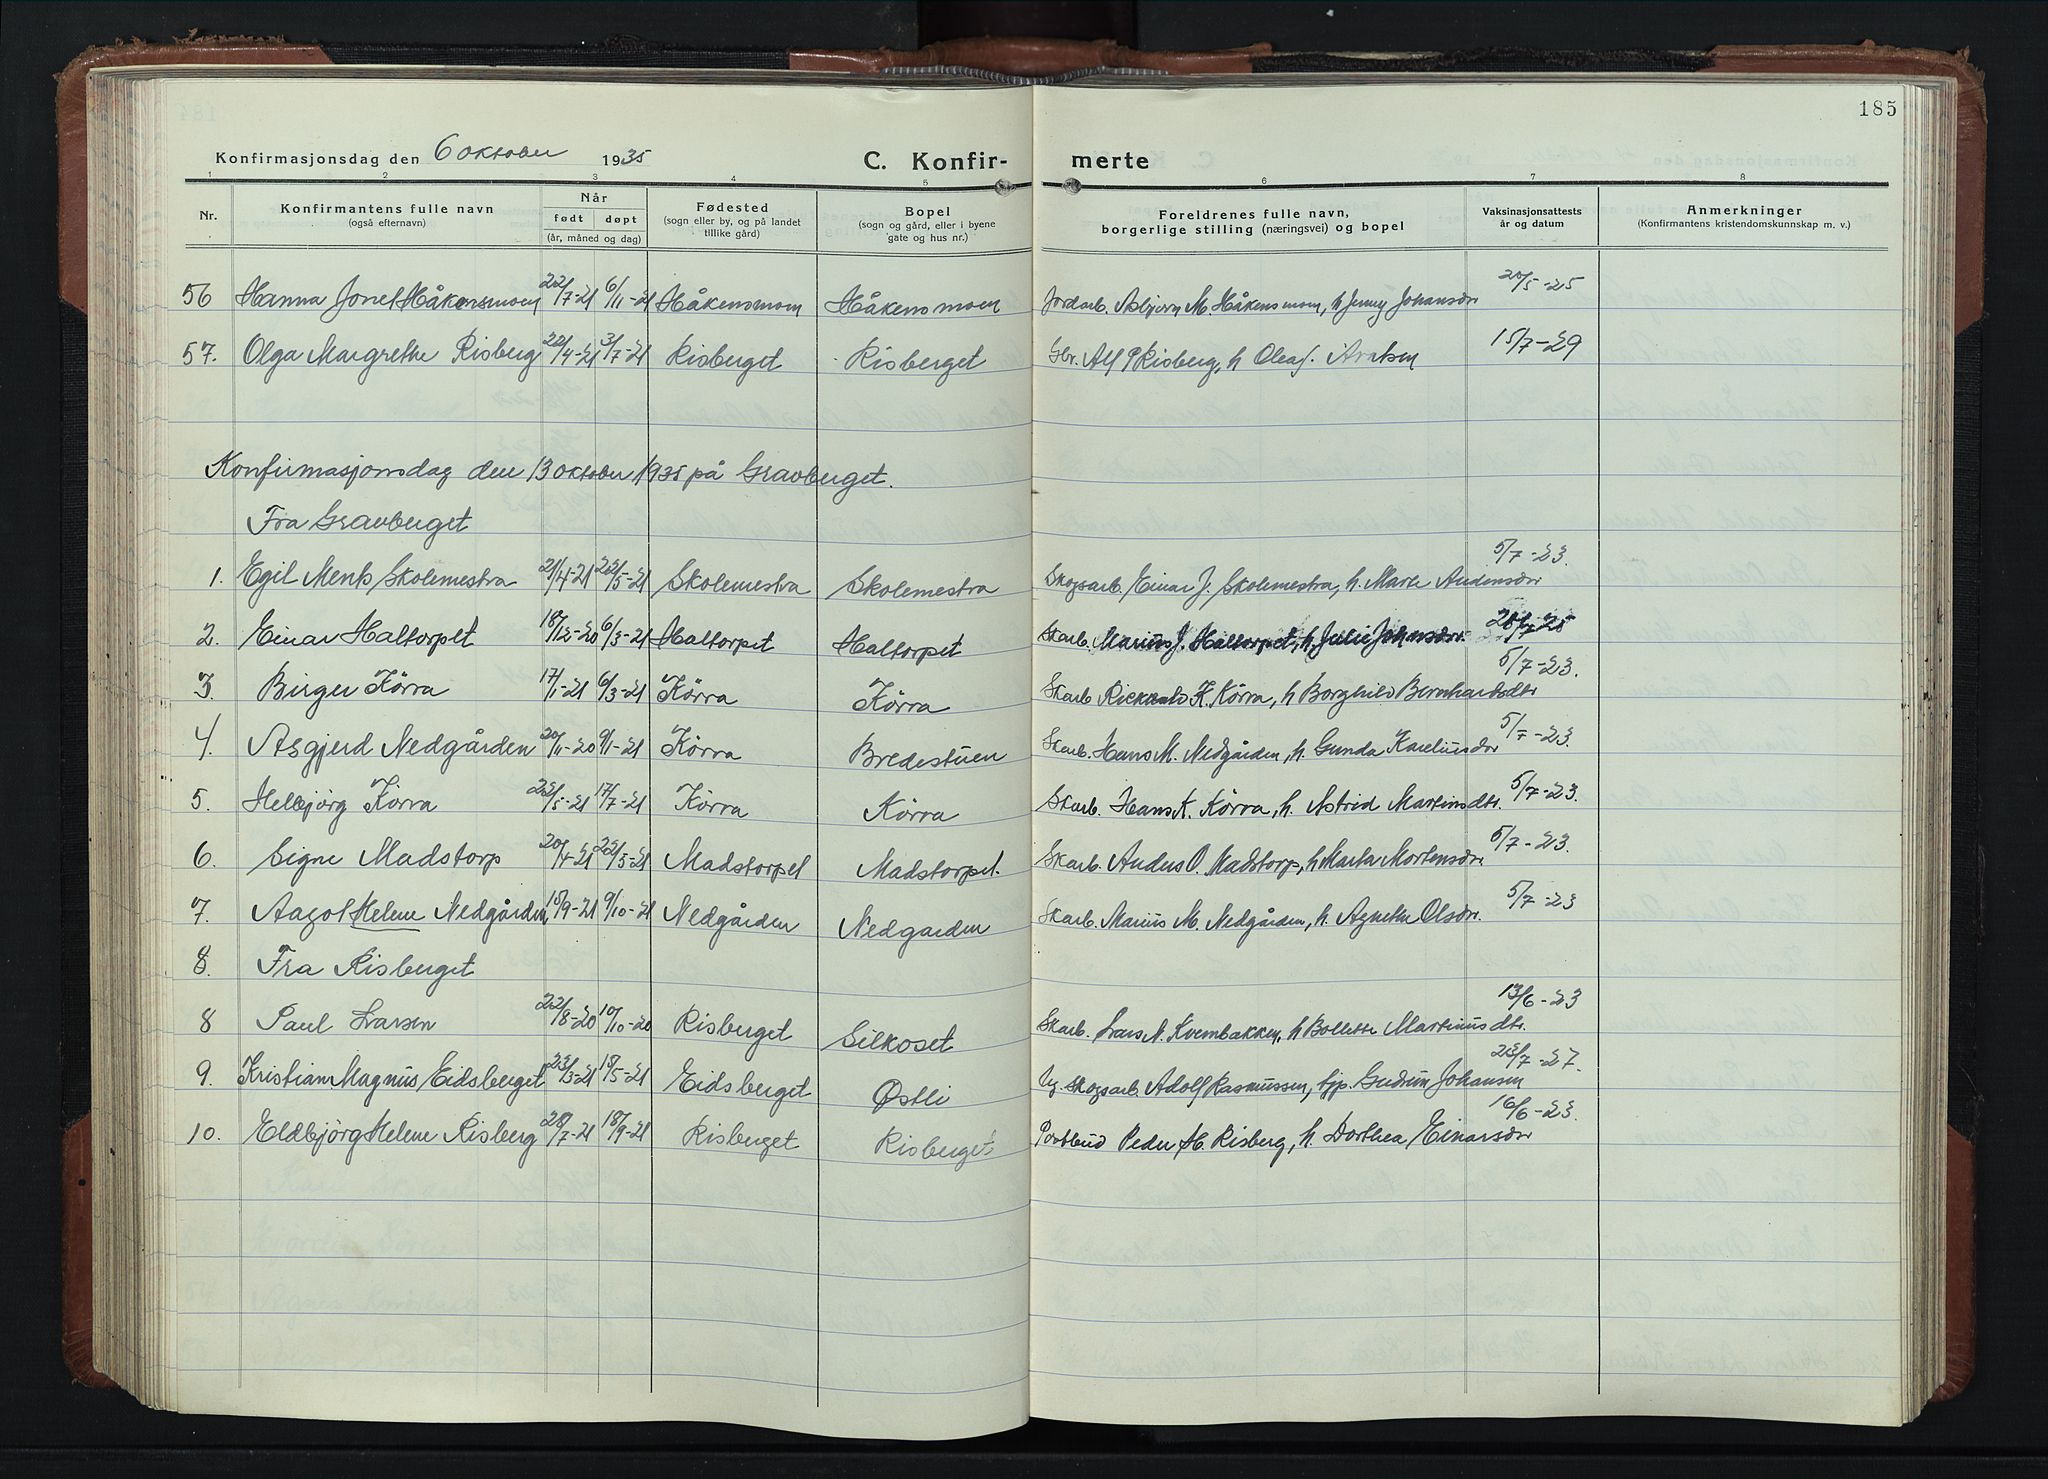 185
Konfirmasjonsdag den 6 oktober 1935 C. Konfir- merte
1 2 3 4 5 6 7 8
Nr. Konfirmantens fulle navn (også efternavn) Når født døpt (år, måned og dag) Fødested (sogn eller by, og på landet tillike gård) Bopel (sogn og gård, eller i byene gate og hus nr.) Foreldrenes fulle navn, borgerlige stilling (næringsvei) og bopel Vaksinasjonsattests år og datum Anmerkninger (Konfirmantens kristendomskunnskap m. v.)
56 Hanna Håkensmoen 22/7-21 6/11-21 Håkensmoen Håkensmoen Jordarb. Asbjørn M. Håkensmoen, h. Jenny Johansdr 20/5-25
57. Olga Margrethe Risberg 22/4-21 3/7-21 Risberget Risberget Gbr. Alf P Risberg, h 15/7-29
Konfirmasjonsdag den 13 oktober 1935 på Gravberget.
Fra Gravberget
1. Egil Skolemestra 21/4-21 22/5-21 Skolemestra Skolemestra Skogsarb. Einar J. Skolemestra, h. Marte Andersdr 5/7-23.
2. Einar Haltorpet 18/12-20 6/3-21 Haltorpet Haltorpet Skarb. Marius J. Haltorpet, h. Julie Johansdr.
3. Birger Kørra 17/1-21 6/3-21 Kørra Kørra Skarb Rickard K. Kørra, h Borghild Bernhartsdtr 5/7-23.
4. Asgjerd Nedgården 20/11-20 9/1-21 Kørra Bredestuen Skarb. Hans M. Nedgården, h. Gunda Kareliusdr 5/7-23.
5. Helbjørg Kørra 22/5-21 17/7-21 Kørra Kørra Skarb. Hans K. Kørra, h. Astrid Martinsdtr. 5/7-23.
6. Signe Madstorp 20/4-21 22/5-21 Madstorpet Madstorpet. Skarb. Anders O. Madstorp, h Marta Mortensdr 5/7-23.
7. Aagot Helene Nedgården, 15/9-21 9/10-21 Nedgården Nedgarden Skarb. Marius M. Nedgården, h. Agnethe Olsdr. 5/7-23
8. Fra Risberget
8 Paul Larsen 22/8-20 10/10-20 Risberget Silkoset Skarb. Lars N. Kvernbakken, h Bollette Martinusdtr. 13/6-23
9. Kristian Magnus Eidsberget 23/3-21 15/5-21 Eidsberget Østli Ug. skogsarb. Adolf Rasmussen, tjp. Gudrun Johansen 23/7-27.
10. Eldbjørg Helene Risberg 28/7-21 18/9-21 Risberget Risberget Postbud Peder H. Risberg, h. Dorthea Einarsdr 16/6-23.